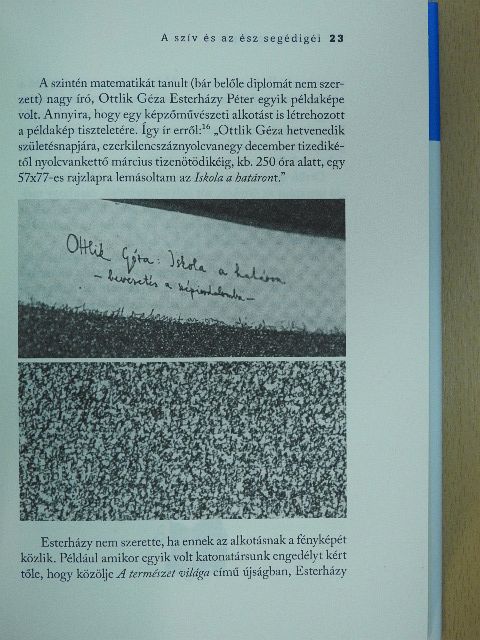 A szív és az ész segédigéi 23
A szintén matematikát tanult (bár belőle diplomát nem szer-
zett) nagy író, Ottlik Géza Esterházy Péter egyik példaképe
volt. Annyira, hogy egy képzőművészeti alkotást is létrehozott
a példakép tiszteletére. Így ír erről:16 „Ottlik Géza hetvenedik
születésnapjára, ezerkilencszáznyolcvanegy december tizediké-
től nyolcvankettő március tizenötödikéig, kb. 250 óra alatt, egy
57x77-es rajzlapra lemásoltam az Iskola a határont.”
Ottlik Géza: Iskola a határon
– bevezetés a szépirodalomba –
Esterházy nem szerette, ha ennek az alkotásnak a fényképét
közlik. Például amikor egyik volt katonatársunk engedélyt kért
tőle, hogy közölje A természet világa című újságban, Esterházy